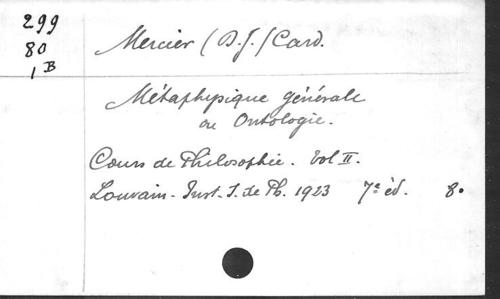 299
80
1 B
Mercier (D.J.) Card.
Métaphysique générale
ou Ontologie.
Cours de Philosophie. Vol II.
Louvain - Inst. S. de Ph. 1923 7e éd. 8o